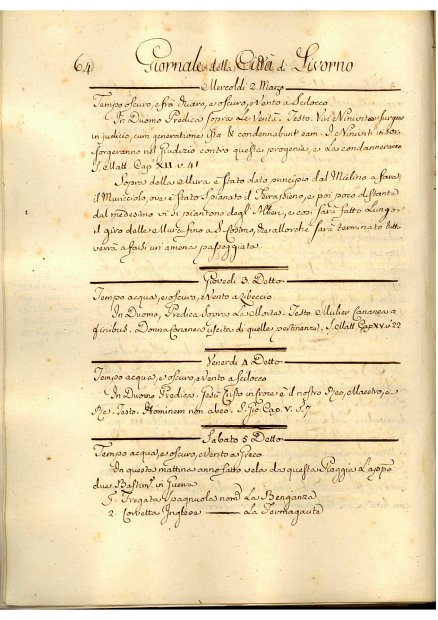 64 Giornale della Città di Livorno
Mercoldì 2. Marzo
Tempo oscuro, e frà Chiaro, e oscuro, e Vento a Scilocco
In Duomo Predica sopra le Verità. Testo. Viri Ninivitæ surgent
in judicio, cum generatione ista & condemnabunt eam. I Niniviti in sor-
sorgeranno nel Giudizio contro questa progenie, e La condanneranno
S. Matt. Cap. XII. v. 41
Sopra delle Mura è Stato dato principio dal Mulino a fare
il Muricciolo, ove è Stato Spianato il Terrapieno, e poi poco distante
dal medesimo vi si piantono degl' Alberi, e così sarà fatto Lungo
il giro delle Mura fino a S. Cosimo, che allorchè sarà terminato
verrà a farsi un'amena passeggiata.
Giovedì 3. Detto
Tempo acqua, e oscuro, e Vento a Libeccio
In Duomo, Predica Sopra La Morte. Testo. Mulier Cananea a
finibus. Donna Cananea uscita di quelle pertinenze. S. Matt. Cap. XV. v. 22
Venerdì 4 Detto
Tempo acqua, e oscuro, e Vento a Scilocco
In Duomo Predica. Gesù Cristo è il nostro Maestro, e
Testo. Hominem non abeo. S. Gio. Cap. V. v. 7.
Sabato 5 Detto
Tempo acqua, e oscuro, e Vento a Greco
In questa mattina anno fatto vela da questa Spiaggia L'app.o
due Bastim.ti in Guerra
Fregata Spagnuola nom.a La Benganza
2. Corvetta Inglese La Termagante